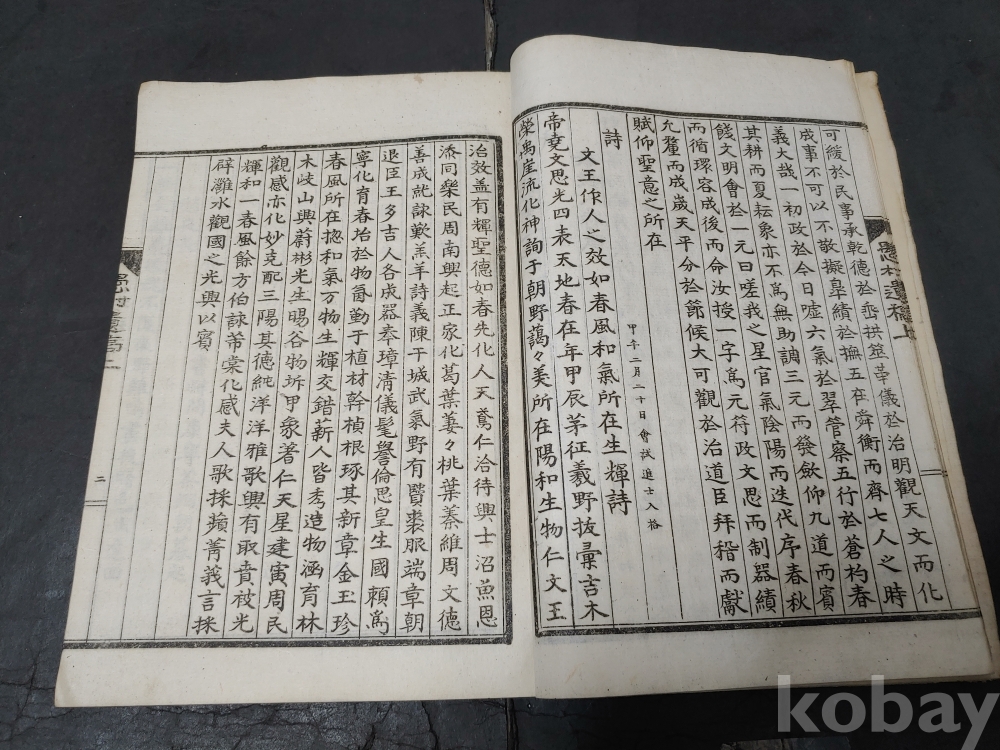 可緩於民事承乾德於垂拱筵華儀於治明觀天文而化
成事不可以不敬擬皐績於撫五在舜衡而齊七人之時
義大哉一初政於今日噓六氣於翠管察五行於蒼杓春
其耕而夏耘象亦不爲無助調三元而發歛仰九道而賓
餞文明會於一元曰嗟我之星官氣陰陽而迭代序春秋
而循環容成後而命汝授一字爲元符政文思而制器績
允釐而成歲天平分於節候大可觀於治道臣拜稽而獻
賦仰聖意之所在
詩
文王作人之效如春風和氣所在生輝詩
甲午二月二十日會試進士入格
帝堯文思先四表天地春在年甲辰茅征羲野拔彙吉木
榮禹崖流化神詢于朝野藹々美所在陽和生物仁文王
治效盖有輝聖德如春先化人天鳶仁洽待興士沼魚恩
添同樂民周南興起正家化葛葉萋々桃葉蓁維周文德
善成就詠歎羔羊詩義陳干城武氣野有賢裘服端章朝
退臣王多吉人各成器奉璋淸儀髦譽倫思皇生國賴爲
寧化育春坮於物氤勤于植材幹楨根琢其新章金玉珍
春風所在揔和氣万物生輝交錯薪人皆秀造物涵育林
木岐山興蔚彬光生暘谷物坼甲衆著仁天星建寅周民
觀感亦化妙克配三陽其德純洋洋雅歌興有取賁被光
輝和一春風餘方伯詠芾棠化感夫人歌採蘋菁莪言採
辟灘水觀國之光興以賓
遺稿上
二
kobay